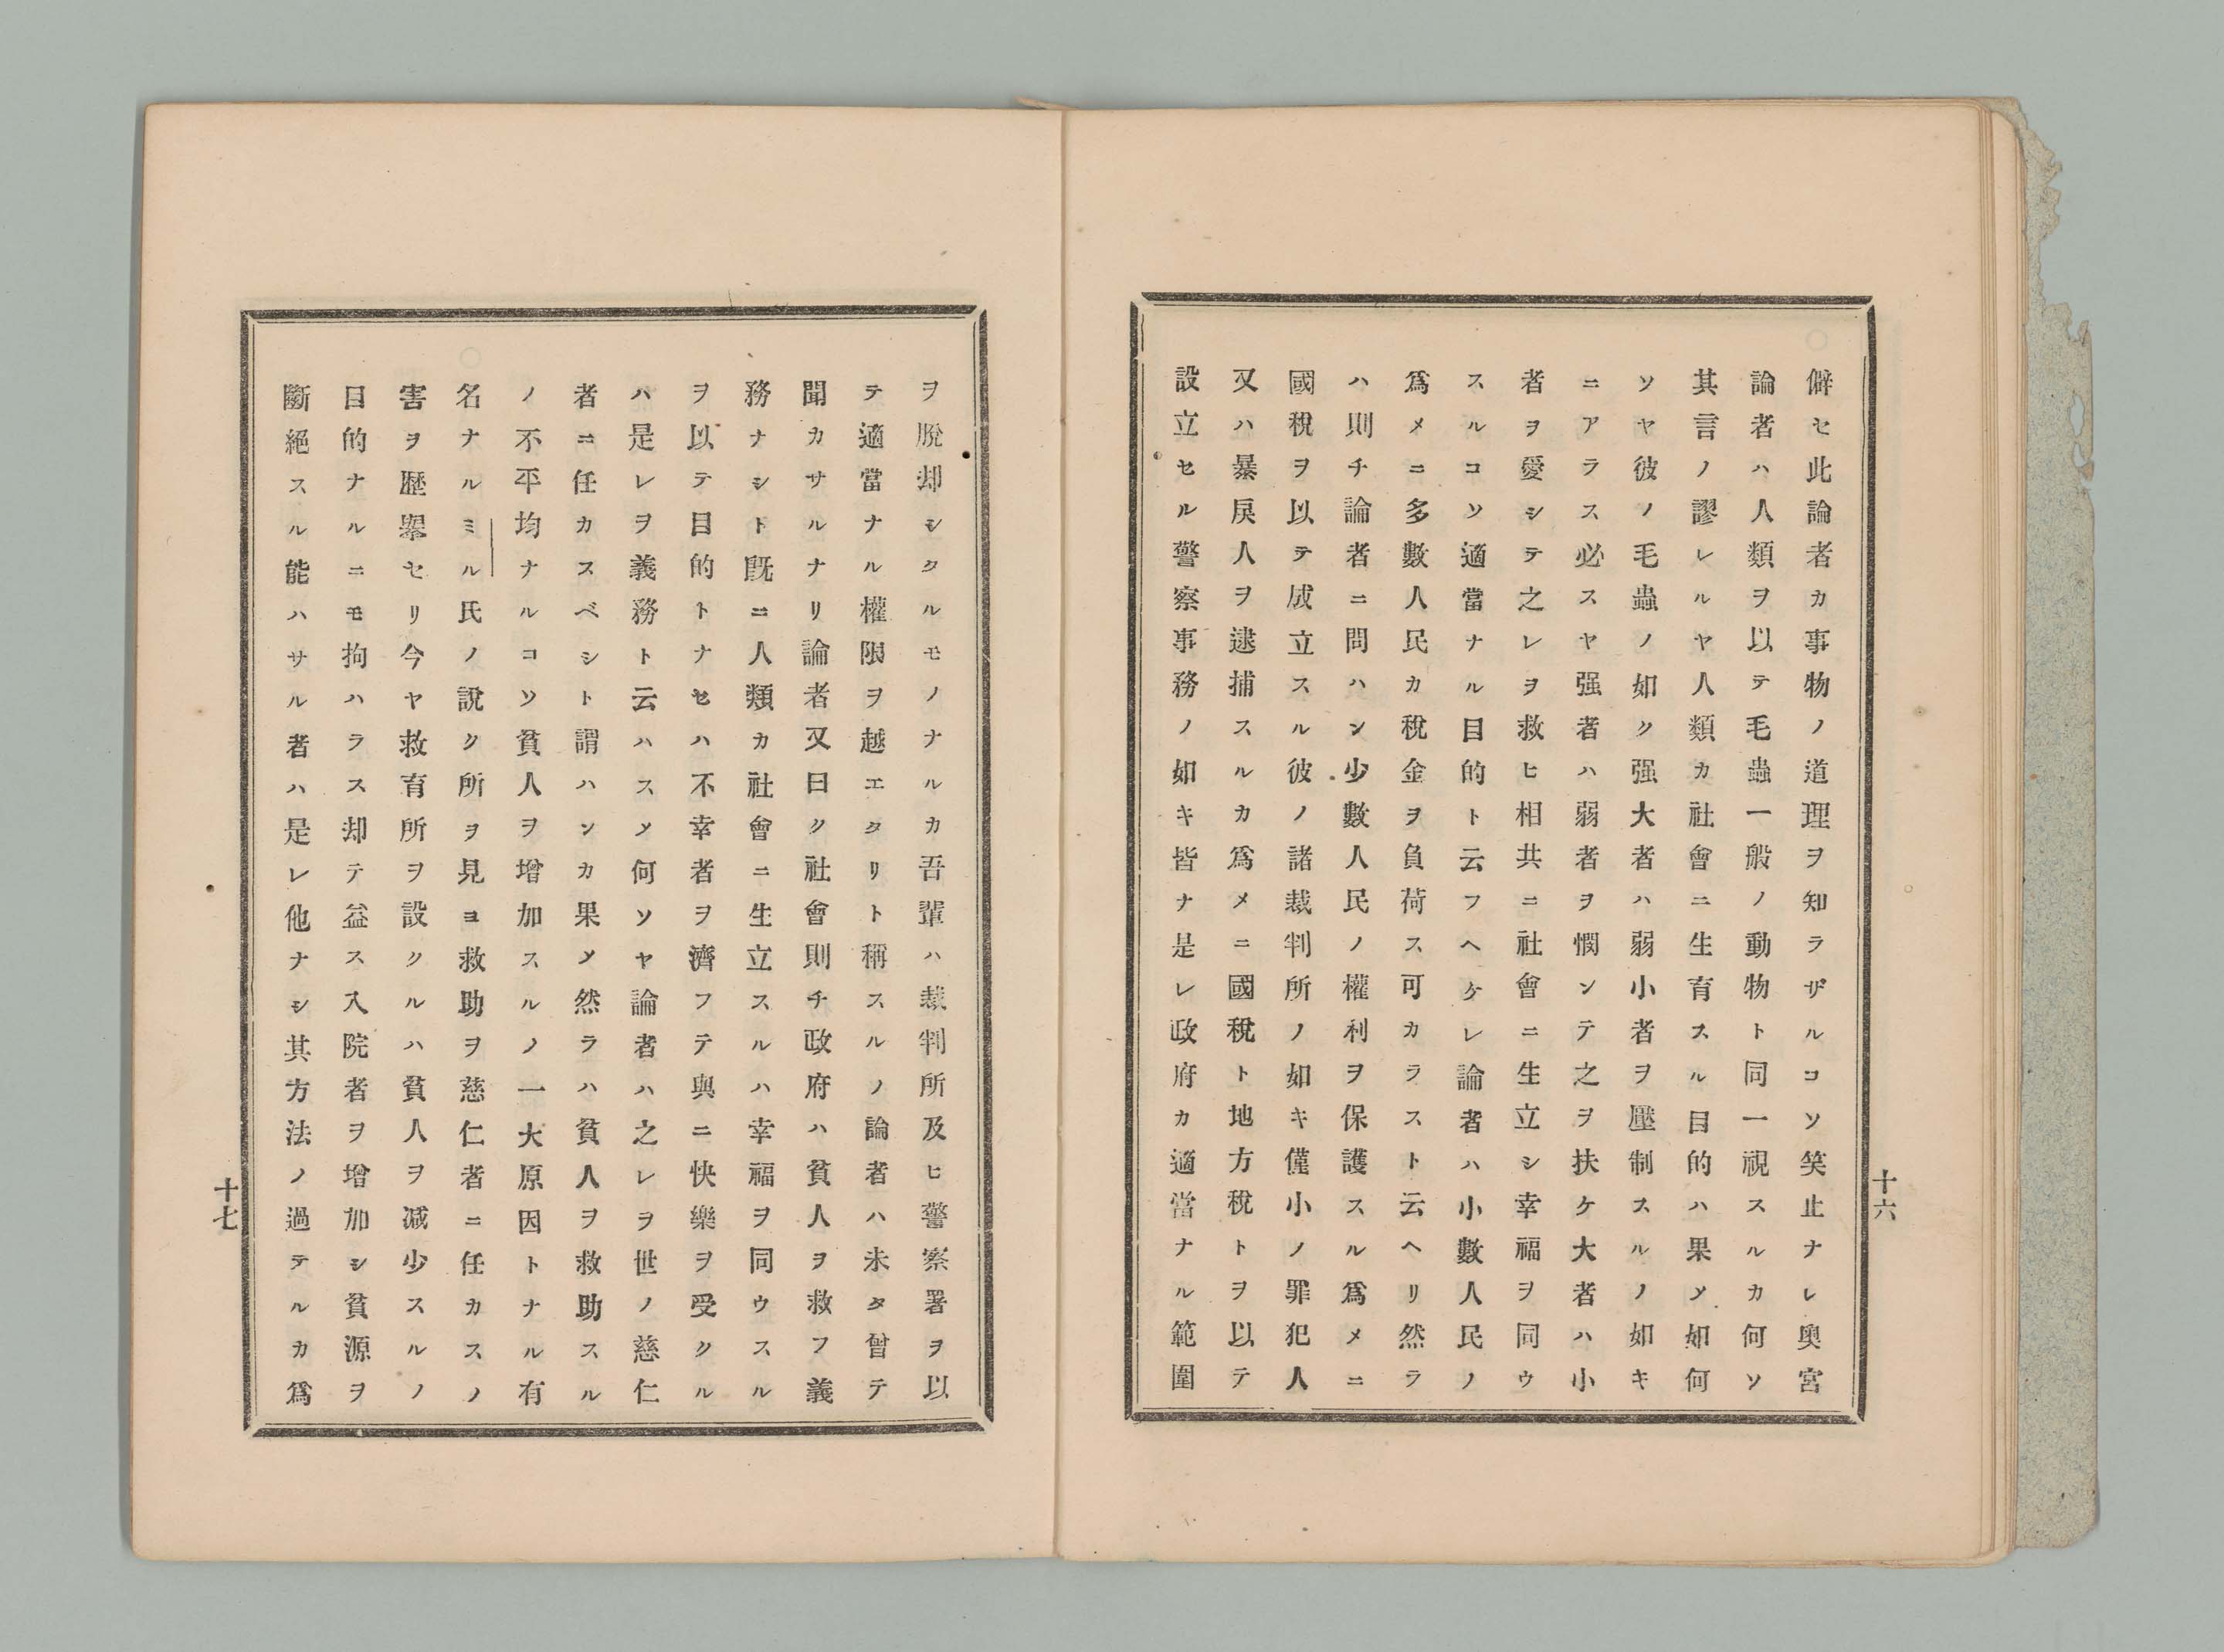 僻セ此論者カ事物ノ道理ヲ知ラザルコソ笑止ナレ奥宮
論者ハ人類ヲ以テ毛蟲一般ノ動物ト同一視スルカ何ソ
其言ノ謬レルヤ人類カ社會ニ生育スル目的ハ果メ如何
ソヤ彼ノ毛蟲ノ如ク强大者ハ弱小者ヲ壓制スルノ如キ
ニアラス必スヤ强者ハ弱者ヲ憫ンテ之ヲ扶ケ大者ハ小
者ヲ愛シテ之レヲ救ヒ相共ニ社會ニ生立シ幸福ヲ同ウ
スルコソ適當ナル目的ト云フヘケレ論者ハ小數人民ノ
爲メニ多數人民カ稅金ヲ負荷ス可カラスト云ヘリ然ラ
ハ則チ論者ニ問ハン少數人民ノ權利ヲ保護スル爲メニ
國稅ヲ以テ成立スル彼ノ諸裁判所ノ如キ僅小ノ罪犯人
又ハ暴戾人ヲ逮捕スルカ爲メニ國稅ト地方稅トヲ以テ
設立セル警察事務ノ如キ皆ナ是レ政府カ適當ナル範圍
十六
ヲ脫却シタルモノナルカ吾輩ハ裁判所及ヒ警察署ヲ以
テ適當ナル權限ヲ越エタリト稱スルノ論者ハ未タ曾テ
聞カサルナリ論者又曰ク社會則チ政府ハ貧人ヲ救フ義
務ナシト既ニ人類カ社會ニ生立スルハ幸福ヲ同ウスル
ヲ以テ目的トナセハ不幸者ヲ濟フテ與ニ快樂ヲ受クル
ハ是レヲ義務ト云ハスメ何ソヤ論者ハ之レヲ世ノ慈仁
者ニ任カスベシト謂ハンカ果メ然ラハ貧人ヲ救助スル
ノ不平均ナルコソ貧人ヲ增加スルノ一大原因トナル有
名ナルミル氏ノ說ク所ヲ見ヨ救助ヲ慈仁者ニ任カスノ
害ヲ歷擧セリ今ヤ救育所ヲ設クルハ貧人ヲ减少スルノ
目的ナルニモ拘ハラス却テ益ス入院者ヲ增加シ貧源ヲ
斷絕スル能ハサル者ハ是レ他ナシ其方法ノ過テルカ爲
十七